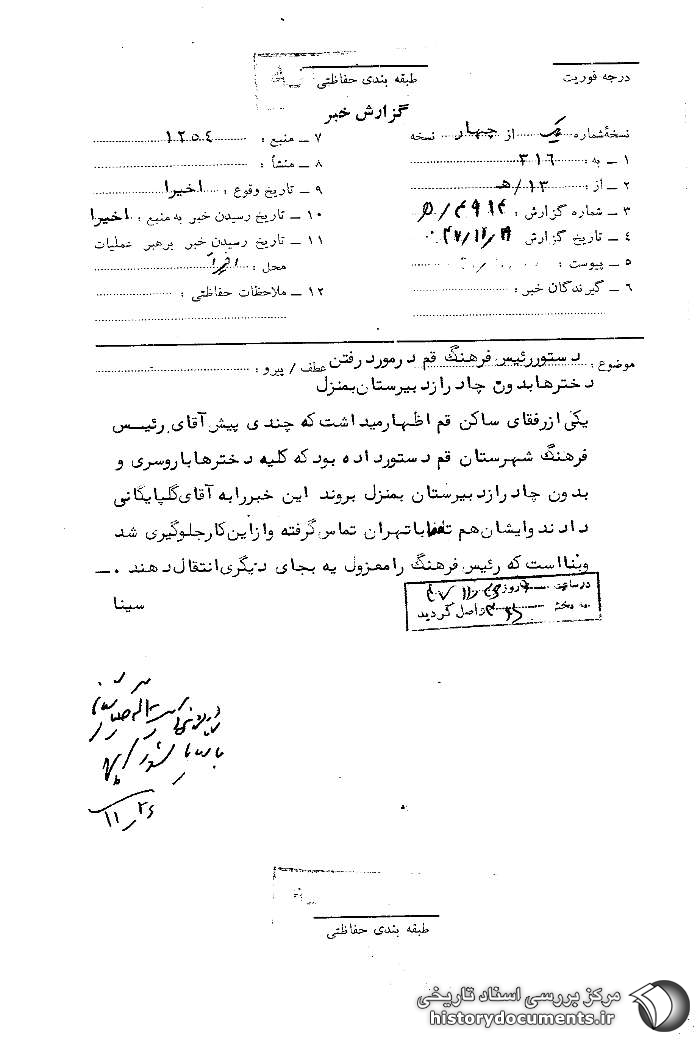 درجه فوریت
طبقه بندی حفاظتی
گزارش خبر
نسخهٔ شماره یک از چهار نسخه
۱ ــ به : ۳۱۶
۲ ــ از : ۱۳/هـ
۳ ــ شماره گزارش :
۴ ــ تاریخ گزارش
۵ ــ پیوست :
۶ ــ گیرندگان خبر :
۷ ــ منبع : ۱۲۵۴
۸ ــ منشأ :
۹ ــ تاریخ وقوع : اخیرا
۱۰ ــ تاریخ رسیدن خبر به منبع : اخیرا
۱۱ ــ تاریخ رسیدن خبر برهبر عملیات
محل : اخیراً
۱۲ ــ ملاحظات حفاظتی :
موضوع : دستور رئیس فرهنگ قم در مورد رفتن عطف / پیرو :
دخترها بدون چادر از دبیرستان بمنزل
یکی از رفقای ساکن قم اظهار میداشت که چندی پیش آقای رئیس
فرهنگ شهرستان قم دستور داده بود که کلیه دخترها با روسری و
بدون چادر از دبیرستان بمنزل بروند این خبر را به آقای گلپایگانی
دادند و ایشان هم با تهران تماس گرفته و از این کار جلوگیری شد
و بنا است که رئیس فرهنگ را معزول یا به جای دیگری انتقال دهند ۰ــ
سینا
در ساعت روز
به بخش واصل گردید
۱۱/۲۶
طبقه بندی حفاظتی
مرکز بررسی اسناد تاریخی
historydocuments.ir